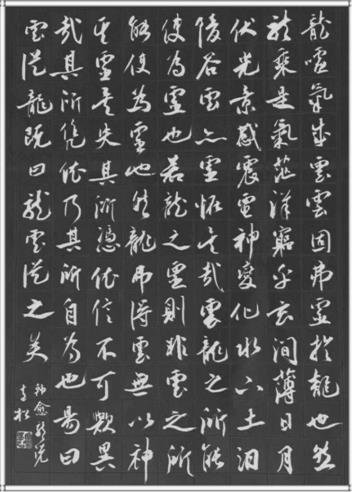 龍噓氣成雲雲固弗靈於龍也然
龍乘是氣茫洋窮乎玄間薄日月
伏光景感震電神變化水下土汩
陵谷雲亦靈怪矣哉雲龍之所能
使為靈也若龍之靈則非雲之所
能使為靈也然龍弗得雲無以神
其靈矣失其所憑依信不可歟異
哉其所憑依乃其所自為也易曰
雲從龍既曰龍雲從之矣
韓愈龍說